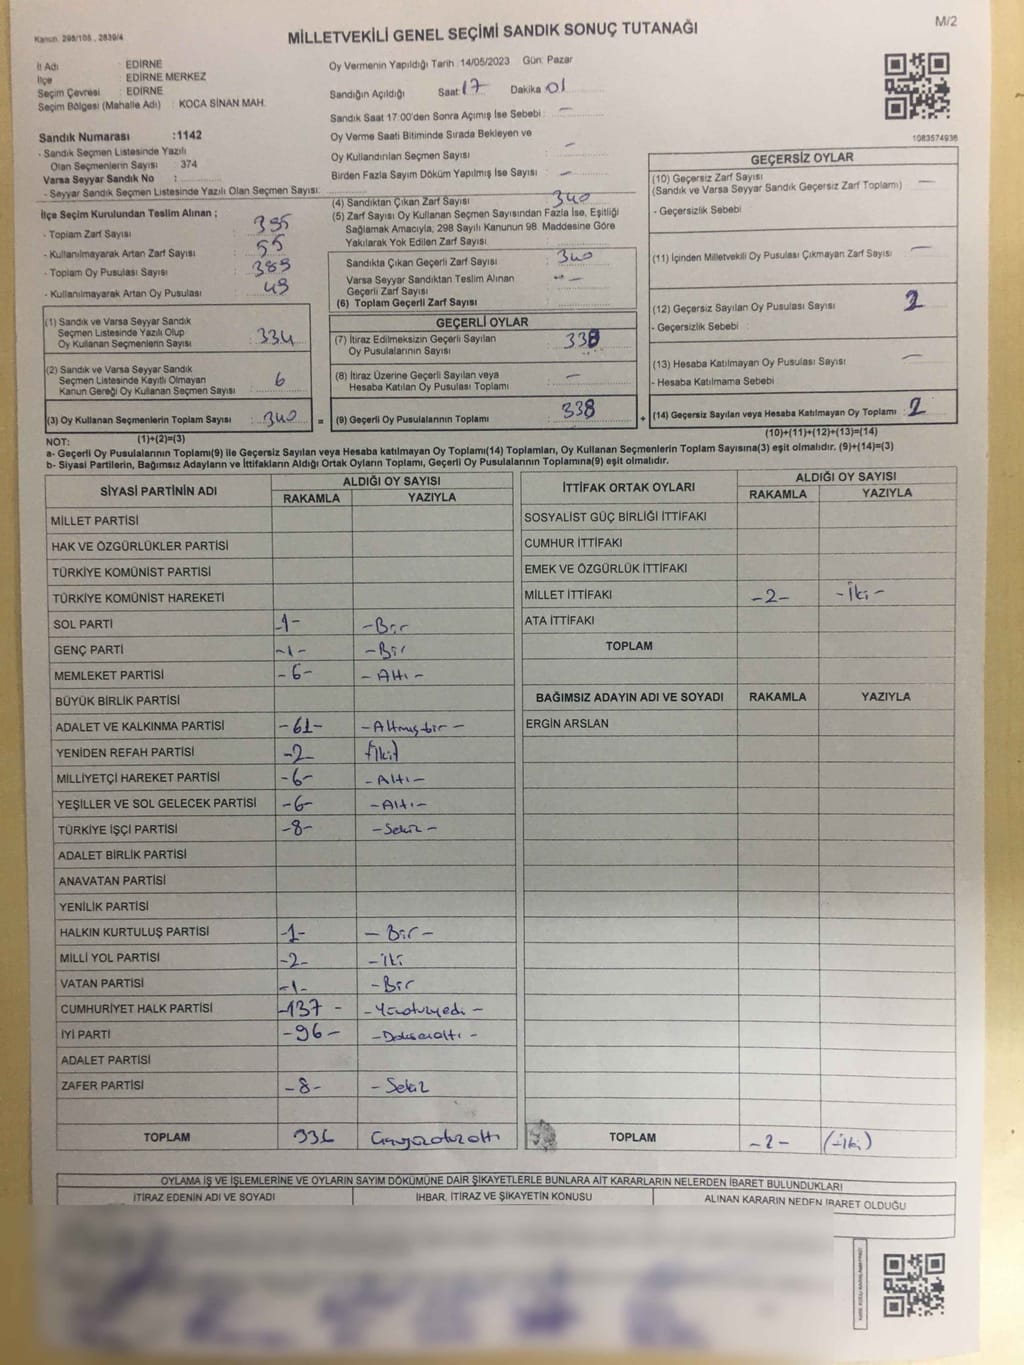 Kanun. 298/105 , 2839/4
MİLLETVEKİLİ GENEL SEÇİMİ SANDIK SONUÇ TUTANAĞI
M/2
İl Adı : EDİRNE
İlçe : EDİRNE MERKEZ
Seçim Çevresi : EDİRNE
Seçim Bölgesi (Mahalle Adı) : KOCA SİNAN MAH.
Sandık Numarası :1142
- Sandık Seçmen Listesinde Yazılı
Olan Seçmenlerin Sayısı : 374
Varsa Seyyar Sandık No :
- Seyyar Sandık Seçmen Listesinde Yazılı Olan Seçmen Sayısı:
Oy Vermenin Yapıldığı Tarih :14/05/2023 Gün: Pazar
Sandığın Açıldığı Saat: 17 Dakika: 01
Sandık Saat 17:00'den Sonra Açımış İse Sebebi : —
Oy Verme Saati Bitiminde Sırada Bekleyen ve
Oy Kullandırılan Seçmen Sayısı : —
Birden Fazla Sayım Döküm Yapılmış İse Sayısı : —
1083574936
İlçe Seçim Kurulundan Teslim Alınan ;
- Toplam Zarf Sayısı : 395
- Kullanılmayarak Artan Zarf Sayısı : 55
- Toplam Oy Pusulası Sayısı : 389
- Kullanılmayarak Artan Oy Pusulası : 49
(1) Sandık ve Varsa Seyyar Sandık
Seçmen Listesinde Yazılı Olup
Oy Kullanan Seçmenlerin Sayısı : 334
(2) Sandık ve Varsa Seyyar Sandık
Seçmen Listesinde Kayıtlı Olmayan
Kanun Gereği Oy Kullanan Seçmen Sayısı : 6
(3) Oy Kullanan Seçmenlerin Toplam Sayısı : 340 =
(1)+(2)=(3)
(4) Sandıktan Çıkan Zarf Sayısı : 340
(5) Zarf Sayısı Oy Kullanan Seçmen Sayısından Fazla İse, Eşitliği
Sağlamak Amacıyla, 298 Sayılı Kanunun 98. Maddesine Göre
Yakılarak Yok Edilen Zarf Sayısı :
Sandıkta Çıkan Geçerli Zarf Sayısı : 340
Varsa Seyyar Sandıktan Teslim Alınan
Geçerli Zarf Sayısı : —
(6) Toplam Geçerli Zarf Sayısı :
GEÇERLİ OYLAR
(7) İtiraz Edilmeksizin Geçerli Sayılan
Oy Pusulalarının Sayısı : 338
(8) İtiraz Üzerine Geçerli Sayılan veya
Hesaba Katılan Oy Pusulası Toplamı : —
(9) Geçerli Oy Pusulalarının Toplamı : 338 +
GEÇERSİZ OYLAR
(10) Geçersiz Zarf Sayısı
(Sandık ve Varsa Seyyar Sandık Geçersiz Zarf Toplamı) : —
- Geçersizlik Sebebi :
(11) İçinden Milletvekili Oy Pusulası Çıkmayan Zarf Sayısı : —
(12) Geçersiz Sayılan Oy Pusulası Sayısı : 2
- Geçersizlik Sebebi :
(13) Hesaba Katılmayan Oy Pusulası Sayısı : —
- Hesaba Katılmama Sebebi :
(14) Geçersiz Sayılan veya Hesaba Katılmayan Oy Toplamı : 2
(10)+(11)+(12)+(13)=(14)
NOT:
a- Geçerli Oy Pusulalarının Toplamı(9) ile Geçersiz Sayılan veya Hesaba katılmayan Oy Toplamı(14) Toplamları, Oy Kullanan Seçmenlerin Toplam Sayısına(3) eşit olmalıdır. (9)+(14)=(3)
b- Siyasi Partilerin, Bağımsız Adayların ve İttifakların Aldığı Ortak Oyların Toplamı, Geçerli Oy Pusulalarının Toplamına(9) eşit olmalıdır.
SİYASİ PARTİNİN ADI ALDIĞI OY SAYISI
RAKAMLA YAZIYLA
MİLLET PARTİSİ
HAK VE ÖZGÜRLÜKLER PARTİSİ
TÜRKİYE KOMÜNİST PARTİSİ
TÜRKİYE KOMÜNİST HAREKETİ
SOL PARTİ -1- -Bir
GENÇ PARTİ -1- -Bir
MEMLEKET PARTİSİ -6- -Altı-
BÜYÜK BİRLİK PARTİSİ
ADALET VE KALKINMA PARTİSİ -61- -Altmışbir-
YENİDEN REFAH PARTİSİ -2 (İki)
MİLLİYETÇİ HAREKET PARTİSİ -6- -Altı-
YEŞİLLER VE SOL GELECEK PARTİSİ -6- -Altı-
TÜRKİYE İŞÇİ PARTİSİ -8- -Sekiz-
ADALET BİRLİK PARTİSİ
ANAVATAN PARTİSİ
YENİLİK PARTİSİ
HALKIN KURTULUŞ PARTİSİ -1- -Bir-
MİLLİ YOL PARTİSİ -2- -iki
VATAN PARTİSİ -1- -Bir
CUMHURİYET HALK PARTİSİ -137-
İYİ PARTİ -96- -Doksanaltı-
ADALET PARTİSİ
ZAFER PARTİSİ -8- -Sekiz
TOPLAM 336 Üçyüzotuzaltı
İTTİFAK ORTAK OYLARI ALDIĞI OY SAYISI
RAKAMLA YAZIYLA
SOSYALİST GÜÇ BİRLİĞİ İTTİFAKI
CUMHUR İTTİFAKI
EMEK VE ÖZGÜRLÜK İTTİFAKI
MİLLET İTTİFAKI -2- -İki-
ATA İTTİFAKI
TOPLAM
BAĞIMSIZ ADAYIN ADI VE SOYADI RAKAMLA YAZIYLA
ERGİN ARSLAN
TOPLAM -2- (-İki)
OYLAMA İŞ VE İŞLEMLERİNE VE OYLARIN SAYIM DÖKÜMÜNE DAİR ŞİKAYETLERLE BUNLARA AİT KARARLARIN NELERDEN İBARET BULUNDUKLARI
İTİRAZ EDENİN ADI VE SOYADI İHBAR, İTİRAZ VE ŞİKAYETİN KONUSU ALINAN KARARIN NEDEN İBARET OLDUĞU